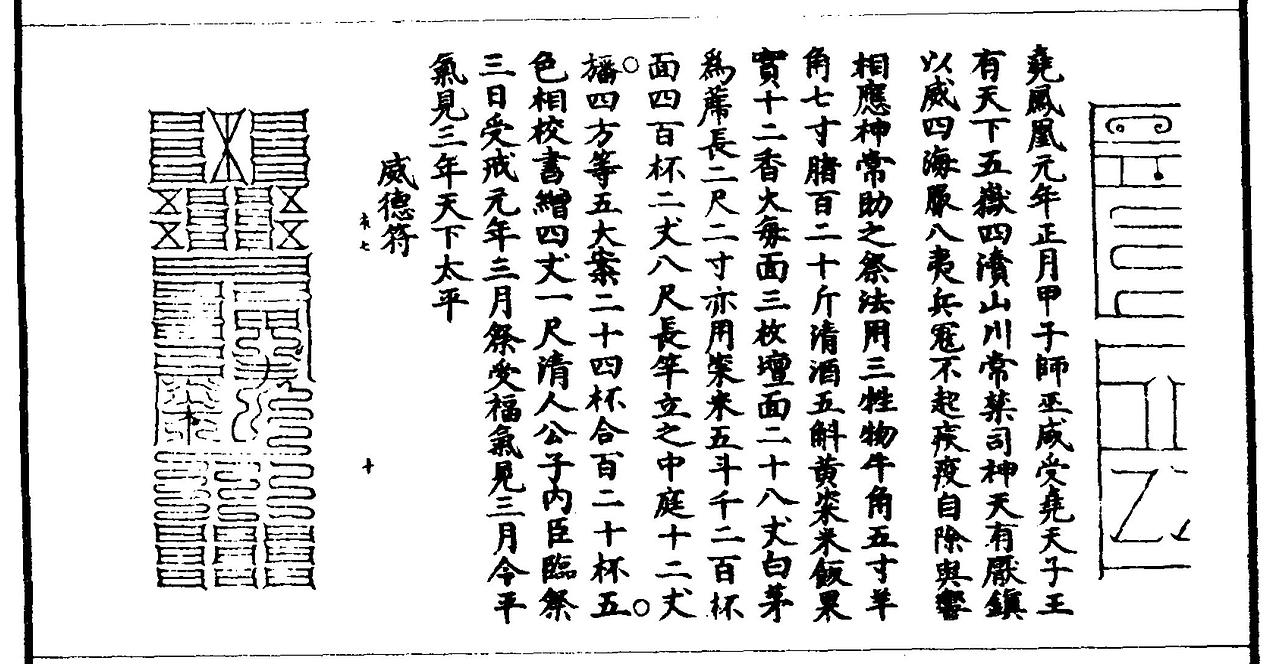 堯鳳凰元年正月甲子師巫咸受堯天子王
有天下五嶽四瀆山川常禁司神天有厭鎮
以威四海服八夷兵冦不起疾疫自除與響
相應神常助之祭法用三牲物牛角五寸羊
角七寸腊百二十斤清酒五斛黄粢米飯果
實十二香火每面三枚壇面二十八丈白茅
為蓆長二尺二寸亦用粢米五斗千二百杯
面四百杯二丈八尺長竿立之中庭十二丈
旛○四方等五大案二十四杯合百二十杯五○
色相校書繒四丈一尺清人公子内臣臨祭
三日受戒元年三月祭受福氣見三月令平
氣見三年天下太平
威德符
七
十